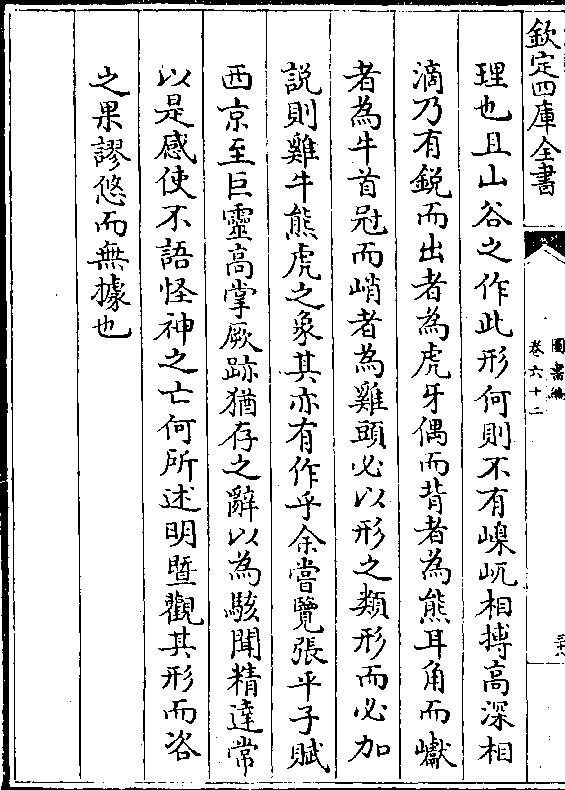 欽定四庫全書
圖書編
卷六十二
理也且山谷之作此形何則不有嵲屼相搏高深相
滴乃有鋭而出者為虎牙偶而背者為熊耳角而巘
者為牛首冠而峭者為雞頭必以形之類形而必加
説則雞牛熊虎之象其亦有作乎余嘗覽張平子賦
西京至巨靈高掌厥跡猶存之辭以為駭聞精達常
以是感使不語怪神之亡何所述明暨觀其形而咨
之果謬悠而無據也